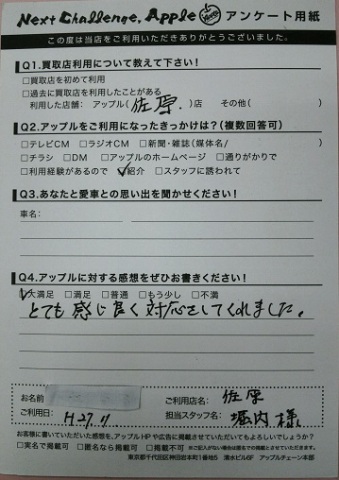 Next Challenge, Apple アンケート用紙
この度は当店をご利用いただきありがとうございました。
Q1.買取店利用について教えて下さい!
□買取店を初めて利用
□過去に買取店を利用したことがある
利用した店舗: アップル(佐原)店 その他( )
Q2.アップルをご利用になったきっかけは?(複数回答可)
□テレビCM □ラジオCM □新聞・雑誌(媒体名/ )
□チラシ □DM □アップルのホームページ □通りがかりで
□利用経験があるので ☑紹介 □スタッフに誘われて
Q3.あなたと愛車との思い出を聞かせください!
車名:
Q4.アップルに対する感想をぜひお書きください!
☑大満足 □満足 □普通 □もう少し □不満
とても感じ良く対応をしてくれました。
お名前
ご利用店名: 佐原
ご利用日: H27.11
担当スタッフ名: 堀内様
お客様に書いていただいた感想を、アップルHPや広告に掲載させていただいてもよろしいでしょうか?
□実名で掲載可 □匿名なら掲載可 □掲載不可 ※ご記入がない場合は匿名での掲載とさせていただきます。
東京都千代田区神田岩本町1番地5 清水ビル6F アップルチェーン本部